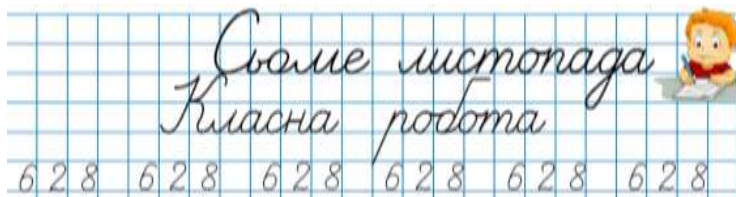 Сьоме листопада
Класна робота
6 2 8 6 2 8 6 2 8 6 2 8 6 2 8 6 2 8